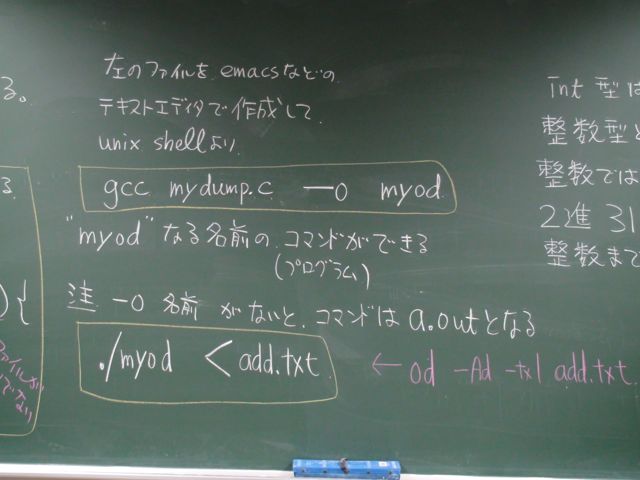 る。
左のファイルを emacsなどの
テキストエディタで作成して、
unix shellより、
gcc mydump.c -o myod
"myod" なる名前の、コマンドができる
(プログラム)
注 -o 名前 がないと、コマンドは a.outとなる
./myod < add.txt
← od -Ad -tx1 add.txt
る
){
int 型は
整数型と
整数では
2進 31
整数まで